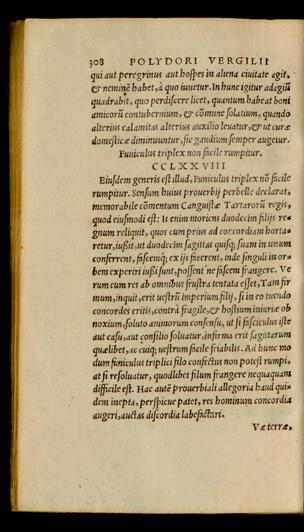 308 POLYDORI VERGILII
qui aut peregrinus aut hoſpes in aliena ciuitate agit,
& neminẽ habet, à quo iuuetur. In hunc igitur adagiũ
quadrabit, quo perdiſcere licet, quantum habeat boni
amicorũ contubernium, & cõmune ſolatium, quando
alterius calamitas alterius auxilio leuatur, & ut curæ
domeſticæ diminuuntur, ſic gaudium ſemper augetur.
Funiculus triplex non facile rumpitur.
CCLXXVIII
Eiuſdem generis eſt illud, Funiculus triplex nõ facile
rumpitur. Senſum huius prouerbij perbelle declarat,
memorabile cõmentum Canguiſtæ Tartarorũ regis,
quod eiuſmodi eſt: Is enim moriens duodecim filijs re⸗
gnum reliquit, quos cum prius ad concordiam horta⸗
retur, iuſsit, ut duodecim ſagittas quiſq; ſuam in unum
conferrent, faſcemq; ex ijs facerent, inde ſinguli in or⸗
bem experiri iuſsi ſunt, poſſent ne faſcem frangere. Ve
rum cum res ab omnibus fruſtra tentata eſſet, Tam fir
mum, inquit, erit ueſtrũ imperium filij, ſi in eo tuendo
concordes eritis, contrà fragile, & hoſtium iniuriæ ob
noxium, ſoluto animorum conſenſu, ut ſi faſciculus iſte
aut caſu, aut cõſilio ſoluatur, infirma erit ſagittarum
quælibet, ac cuiq; ueſtrum facile friabilis. Ad hunc mo
dum funiculus triplici filo confectus non poteſt rumpi,
at ſi reſoluatur, quodlibet filum frangere nequaquam
difficile eſt. Hac autẽ prouerbiali allegoria haud qui⸗
dem inepta, perſpicue patet, res hominum concordia
augeri, auctas diſcordia labefactari.
Væ terræ,